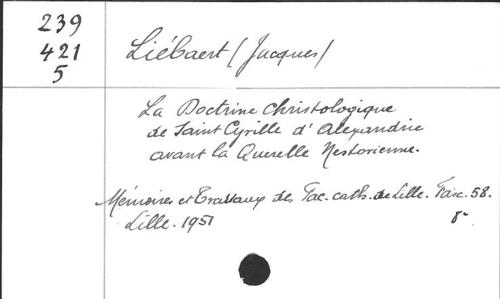 239
421
5
Liébaert (Jacques)
La Doctrine Christologique
de Saint Cyrille d'Alexandrie
avant la Querelle Nestorienne.
Mémoires et Travaux des Fac. cath. de Lille. Fasc. 58.
Lille. 1951 8°